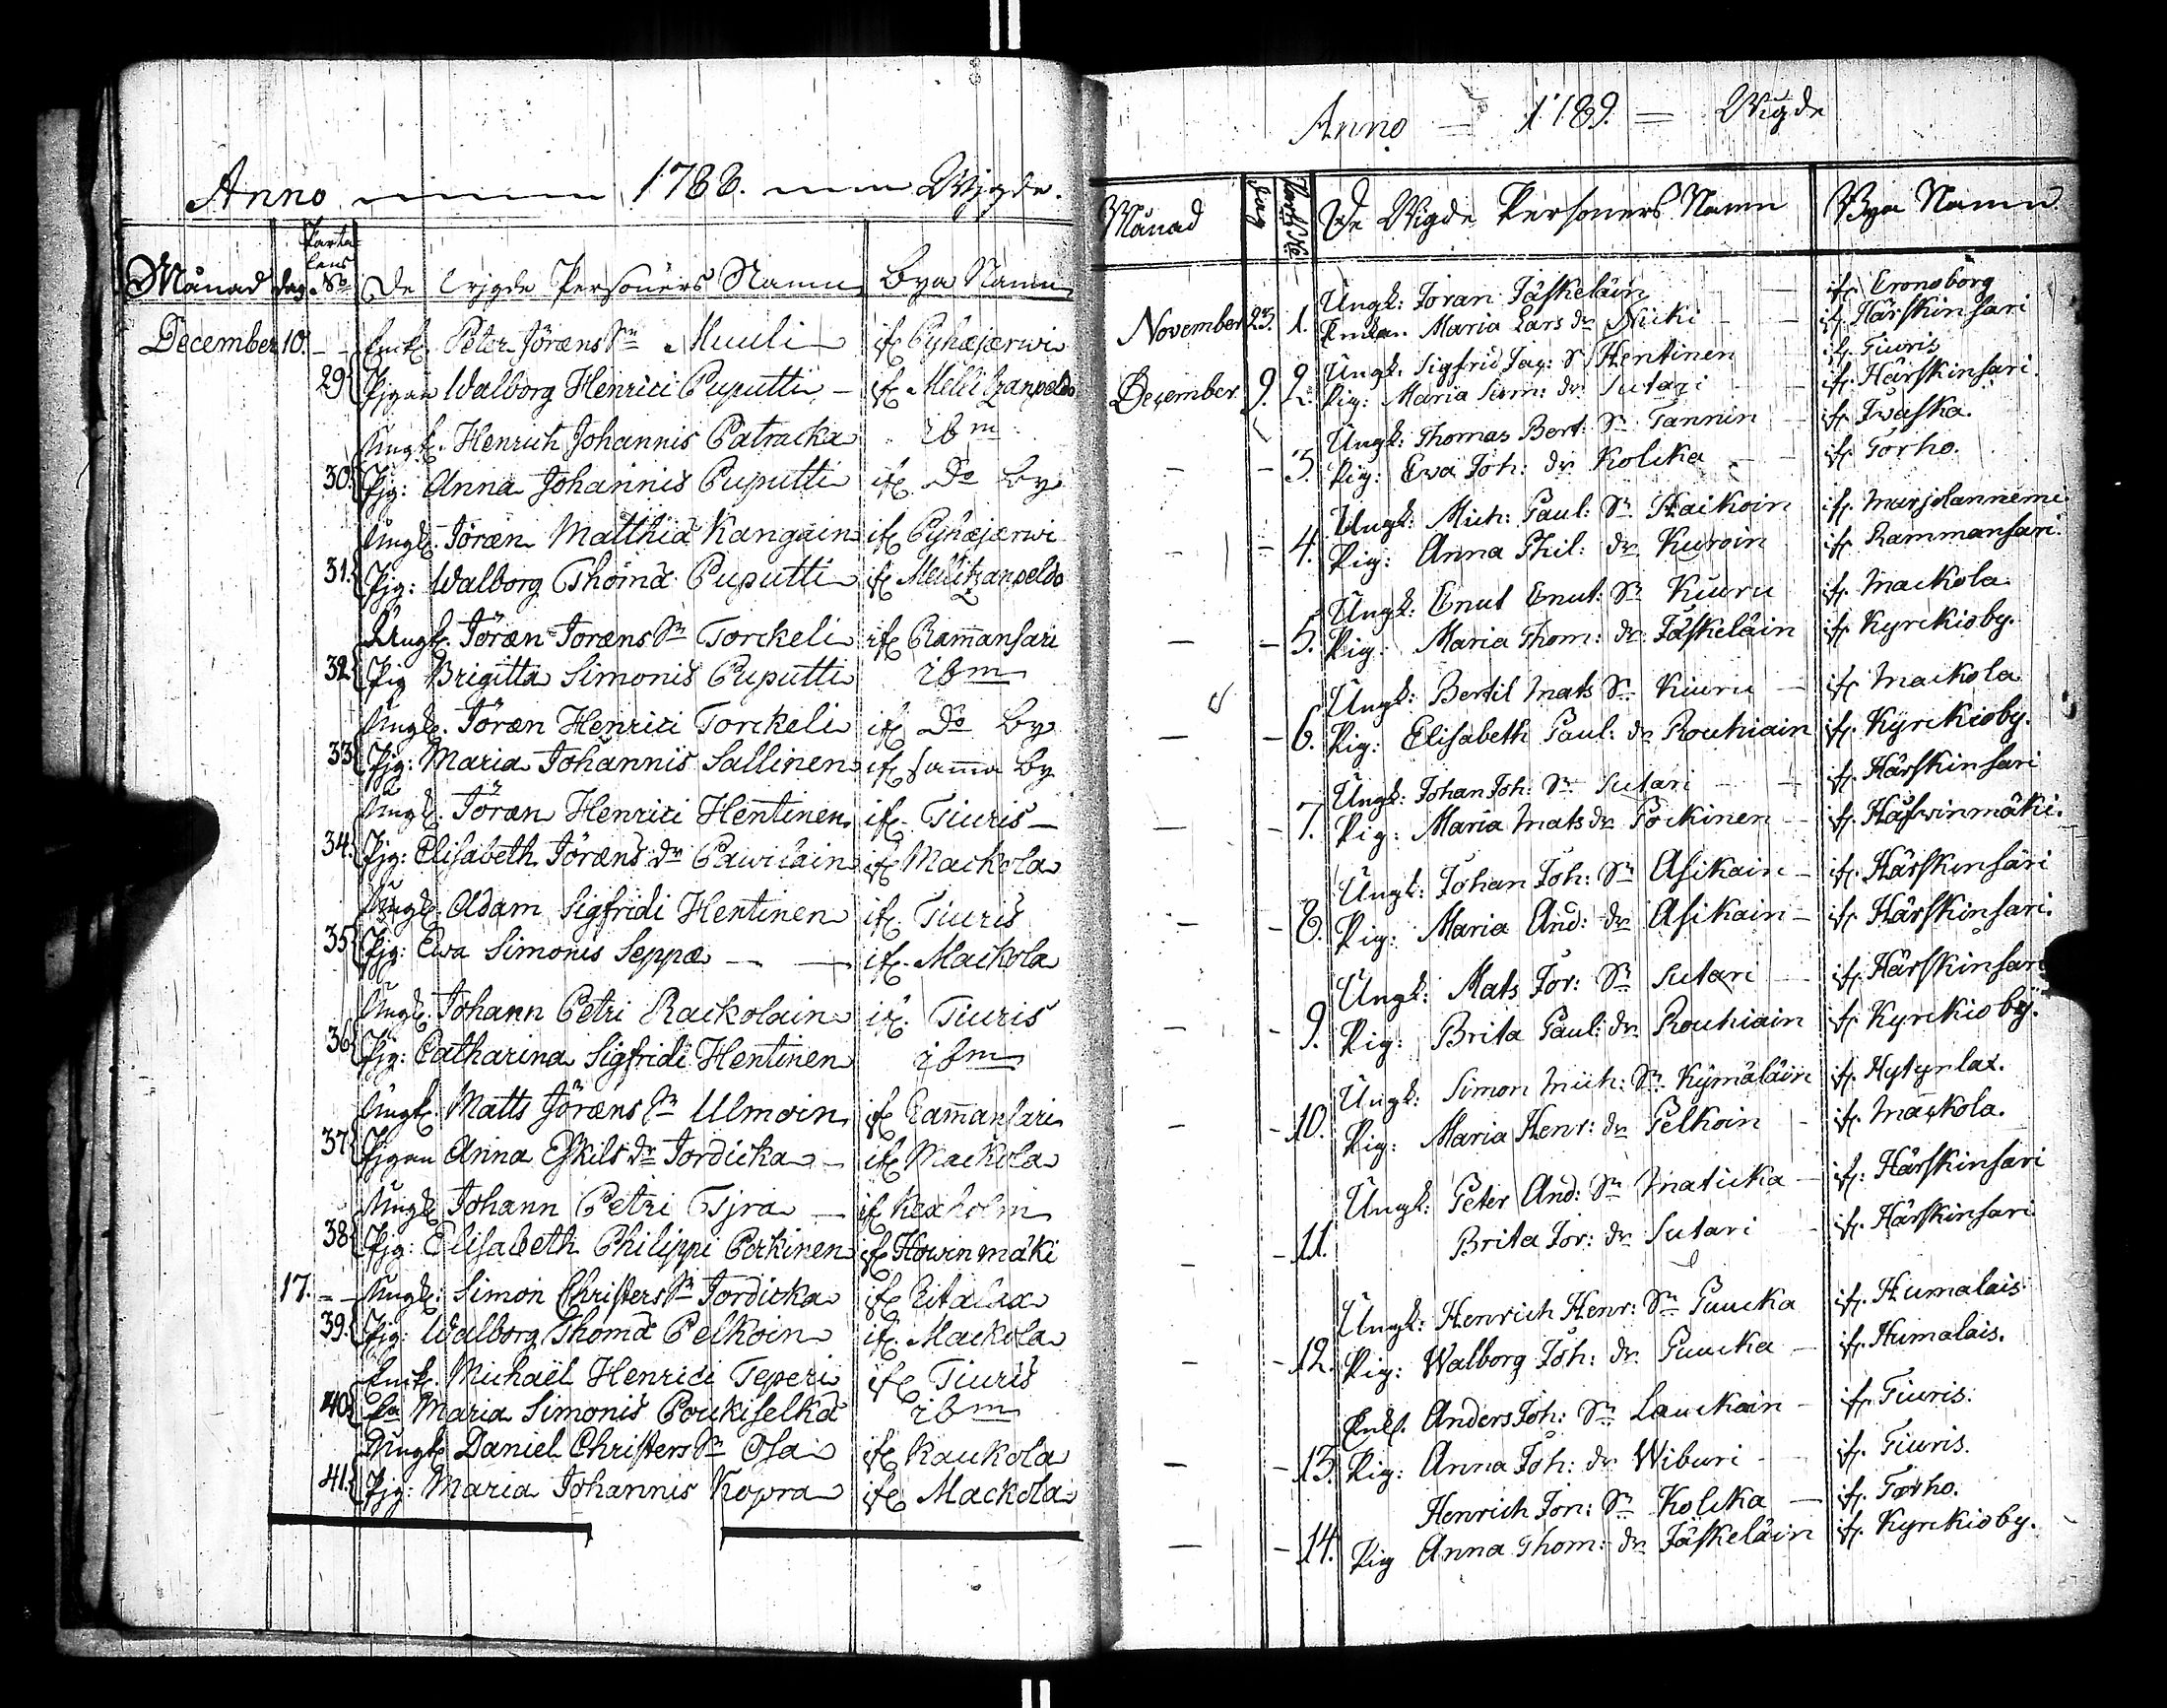 Anno 1788. Wijgde.
Månad dag Partalens No De wijgde Personers Namn Bya Namn
December 10. Enkl. Peter Jöræns Sn Muuli if. Pyhæjærwi
29 Pigan Walborg Henrici Puputti if. Mellitzanpeldo
Ungk. Henrich Johannis Patracka ibm
30. Pig: Anna Johannis Puputti if. Do By
Ungk. Jöræn Matthiæ Kangain if. Pyhæjærwi
31. Pig: Walborg Thomæ Puputti if. Mellitzanpeldo
Ungk. Jöræn Joræns Sn Torckeli if. Ram̅ansari
32 Pig Brigitta Simonis Puputti ibm
Ungk. Jöræn Henrici Torckeli if. Do By
33 Pig: Maria Johannis Sallinen if. sam̅a By
Ungk. Jöræn Henrici Hentinen if. Tiuris
34. Pig: Elisabeth Jöræns dr Pawilain if. Mackola
Ungk. Adam Sigfridi Hentinen if. Tiuris
35 Pig: Ewa Simonis Seppæ if. Mackola
Ungk. Johann Petri Rackolain if. Tiuris
36 Pig: Catharina Sigfridi Hentinen ibm
Ungk. Matts Jöræns Sn Ulmoin if. Ram̅ansari
37 Pigan Anna Eskils dr Jordicka if. Mackola
Ungk Johann Petri Tjra if Kexholm
38 Pig: Elisabeth Philippi Pockinen if. Howinmäki
17. Ungk: Simon Christers Sn Jordicka if. Ritalax
39. Pig: Walborg Thomæ Pelkoin if. Mackola
Enkl. Michaël Henrici Teperi if. Tiuris
40 Maria Simonis Poukiselkä ibm
Ungk Daniel Christers Sn Osa if. Kaukola
41. Pig: Maria Johannis Kopra if. Mackola
Anno = 1789. = Wigde
Månad Dag De Wigde Personers Namn Bya Namn
Ungk: Joran Jäskeläin if. Cronoborg
November 23. 1. Enkan Maria Lars dr Nicki if. Härskinsari
Ungk. Sigfrid Jag: S Hentinen if. Tiuris
December 9. 2. Pig: Maria Sim: dr Sutari if. Härskinsari.
Ungk: Thomas Bert: Sn Tannin if. Iwaska.
3. Pig: Ewa Joh: dr Kolcka if. Torho.
Ungk: Mich: Paul: Sn Haikoin if. Marjolanniemi
4. Pig: Anna Phil: dr Kuroin if. Rammansari.
Ungk: Cnut Cnut: Sn Kiuru if. Mackola.
5. Pig: Maria Thom: dr Jäskeläin if. Kyrckioby.
Ungk: Bertil Mats Sn Kiuru if. Mackola
6. Pig: Elisabeth Paul: dr Rouhiain if. Kyrckioby.
Ungk: Johan Joh: Sn Sutari if. Härskinsari
7. Pig: Maria Mats dr Pockinen if. Hafwinmäki.
Ungk: Johan Joh: Sn Asikain if. Härskinsari
8. Pig: Maria And: dr Asikain if. Härskinsari.
Ungk: Mats Jor: Sn Sutari if. Härskinsari
9. Pig: Brita Paul: dr Rouhiain if. Kyrckioby.
Ungk: Simon Mich: Sn Kymäläin if. Hytynlax.
10. Pig: Maria Henr: dr Pelkoin if. Mackola.
Ungk: Peter And: Sn Maticka if. Härskinsari
11. Brita Jor: dr Sutari if. Härskinsari
Ungk: Henrich Henr: Sn Puucka if. Humalais.
12. Pig: Walborg Joh: dr Puucka if. Humalais.
Enkl. Anders Joh: Sn Lauckain if. Tiuris.
13. Pig: Anna Joh: dr Wiburi if. Tiuris.
Henrich Jon: Sn Kolcka if. Torho.
14. Pig Anna Thom: dr Jäskeläin if. Kyrckioby.